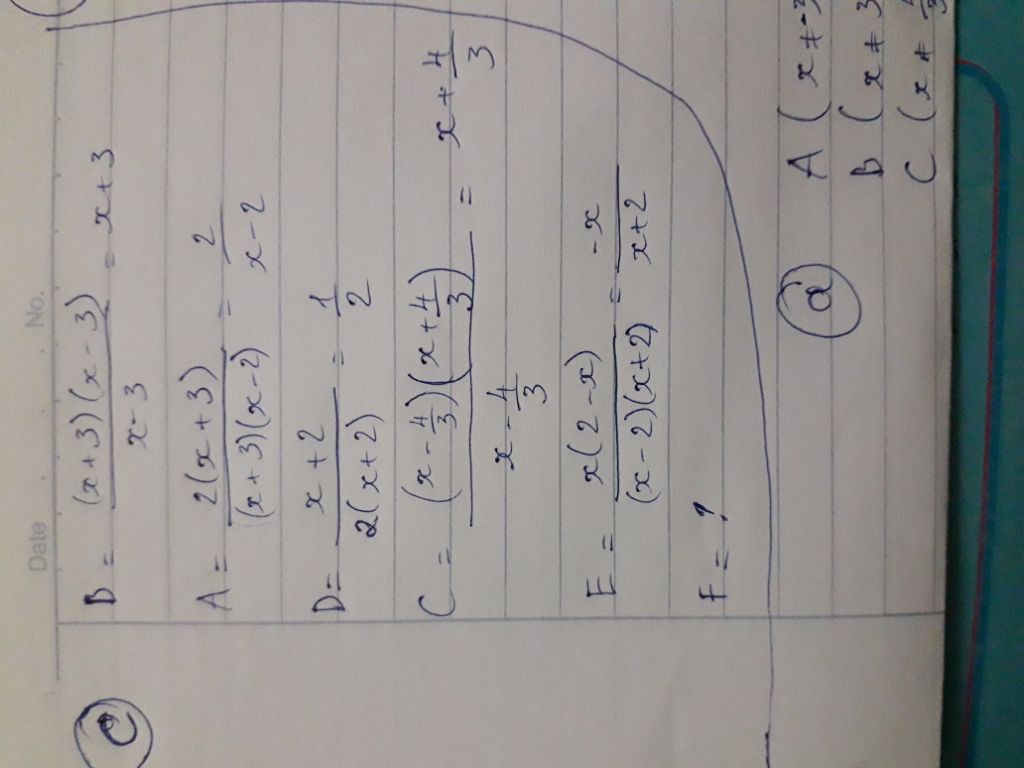 Date No.
c
B = (x+3)(x-3) / x-3 = x+3
A = 2(x+3) / (x+3)(x-2) = 2 / x-2
D = x+2 / 2(x+2) = 1/2
C = (x - 4/3)(x + 4/3) / x - 4/3 = x + 4/3
E = x(2-x) / (x-2)(x+2) = -x / x+2
F = ?
a A (x ≠ -3
B (x ≠ 3
C (x ≠